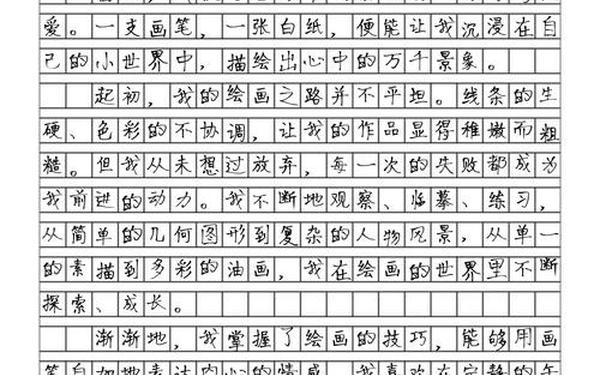 爱。一支画笔，一张白纸，便能让我沉浸在自
己的小世界中，描绘出心中的万千景象。
起初，我的绘画之路并不平坦。线条的生
硬、色彩的不协调，让我的作品显得稚嫩而粗
糙。但我从未想过放弃，每一次的失败都成为
我前进的动力。我不断地观察、临摹、练习，
从简单的几何图形到复杂的人物风景，从单一
的素描到多彩的油画，我在绘画的世界里不断
探索、成长。
渐渐地，我掌握了绘画的技巧，能够用画
笔自如地表达内心的情感。我喜欢在宁静的午